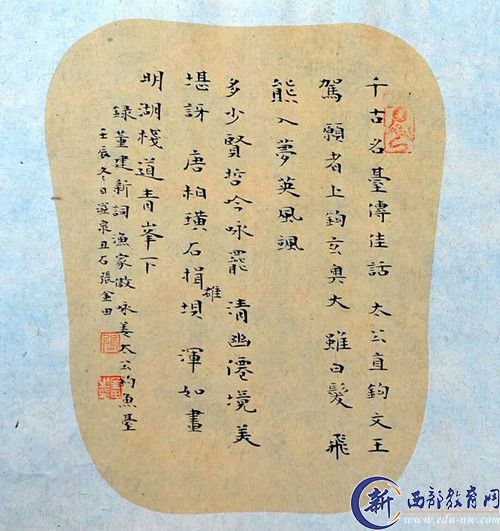 千古名臺傳佳話 太公直鈎文王
駕願者上鈎玄奧大 雖白髮飛
熊入夢英風颯
多少賢哲吟咏罷 清幽僊境美
堪訝 唐柏璜石揖壩 渾如畫
雄
明湖棧道青峯下
錄董建新詞漁家傲咏姜太公釣魚臺
壬辰冬日 泉丑石張金田
新 西部教育网
www.edu-nw.com